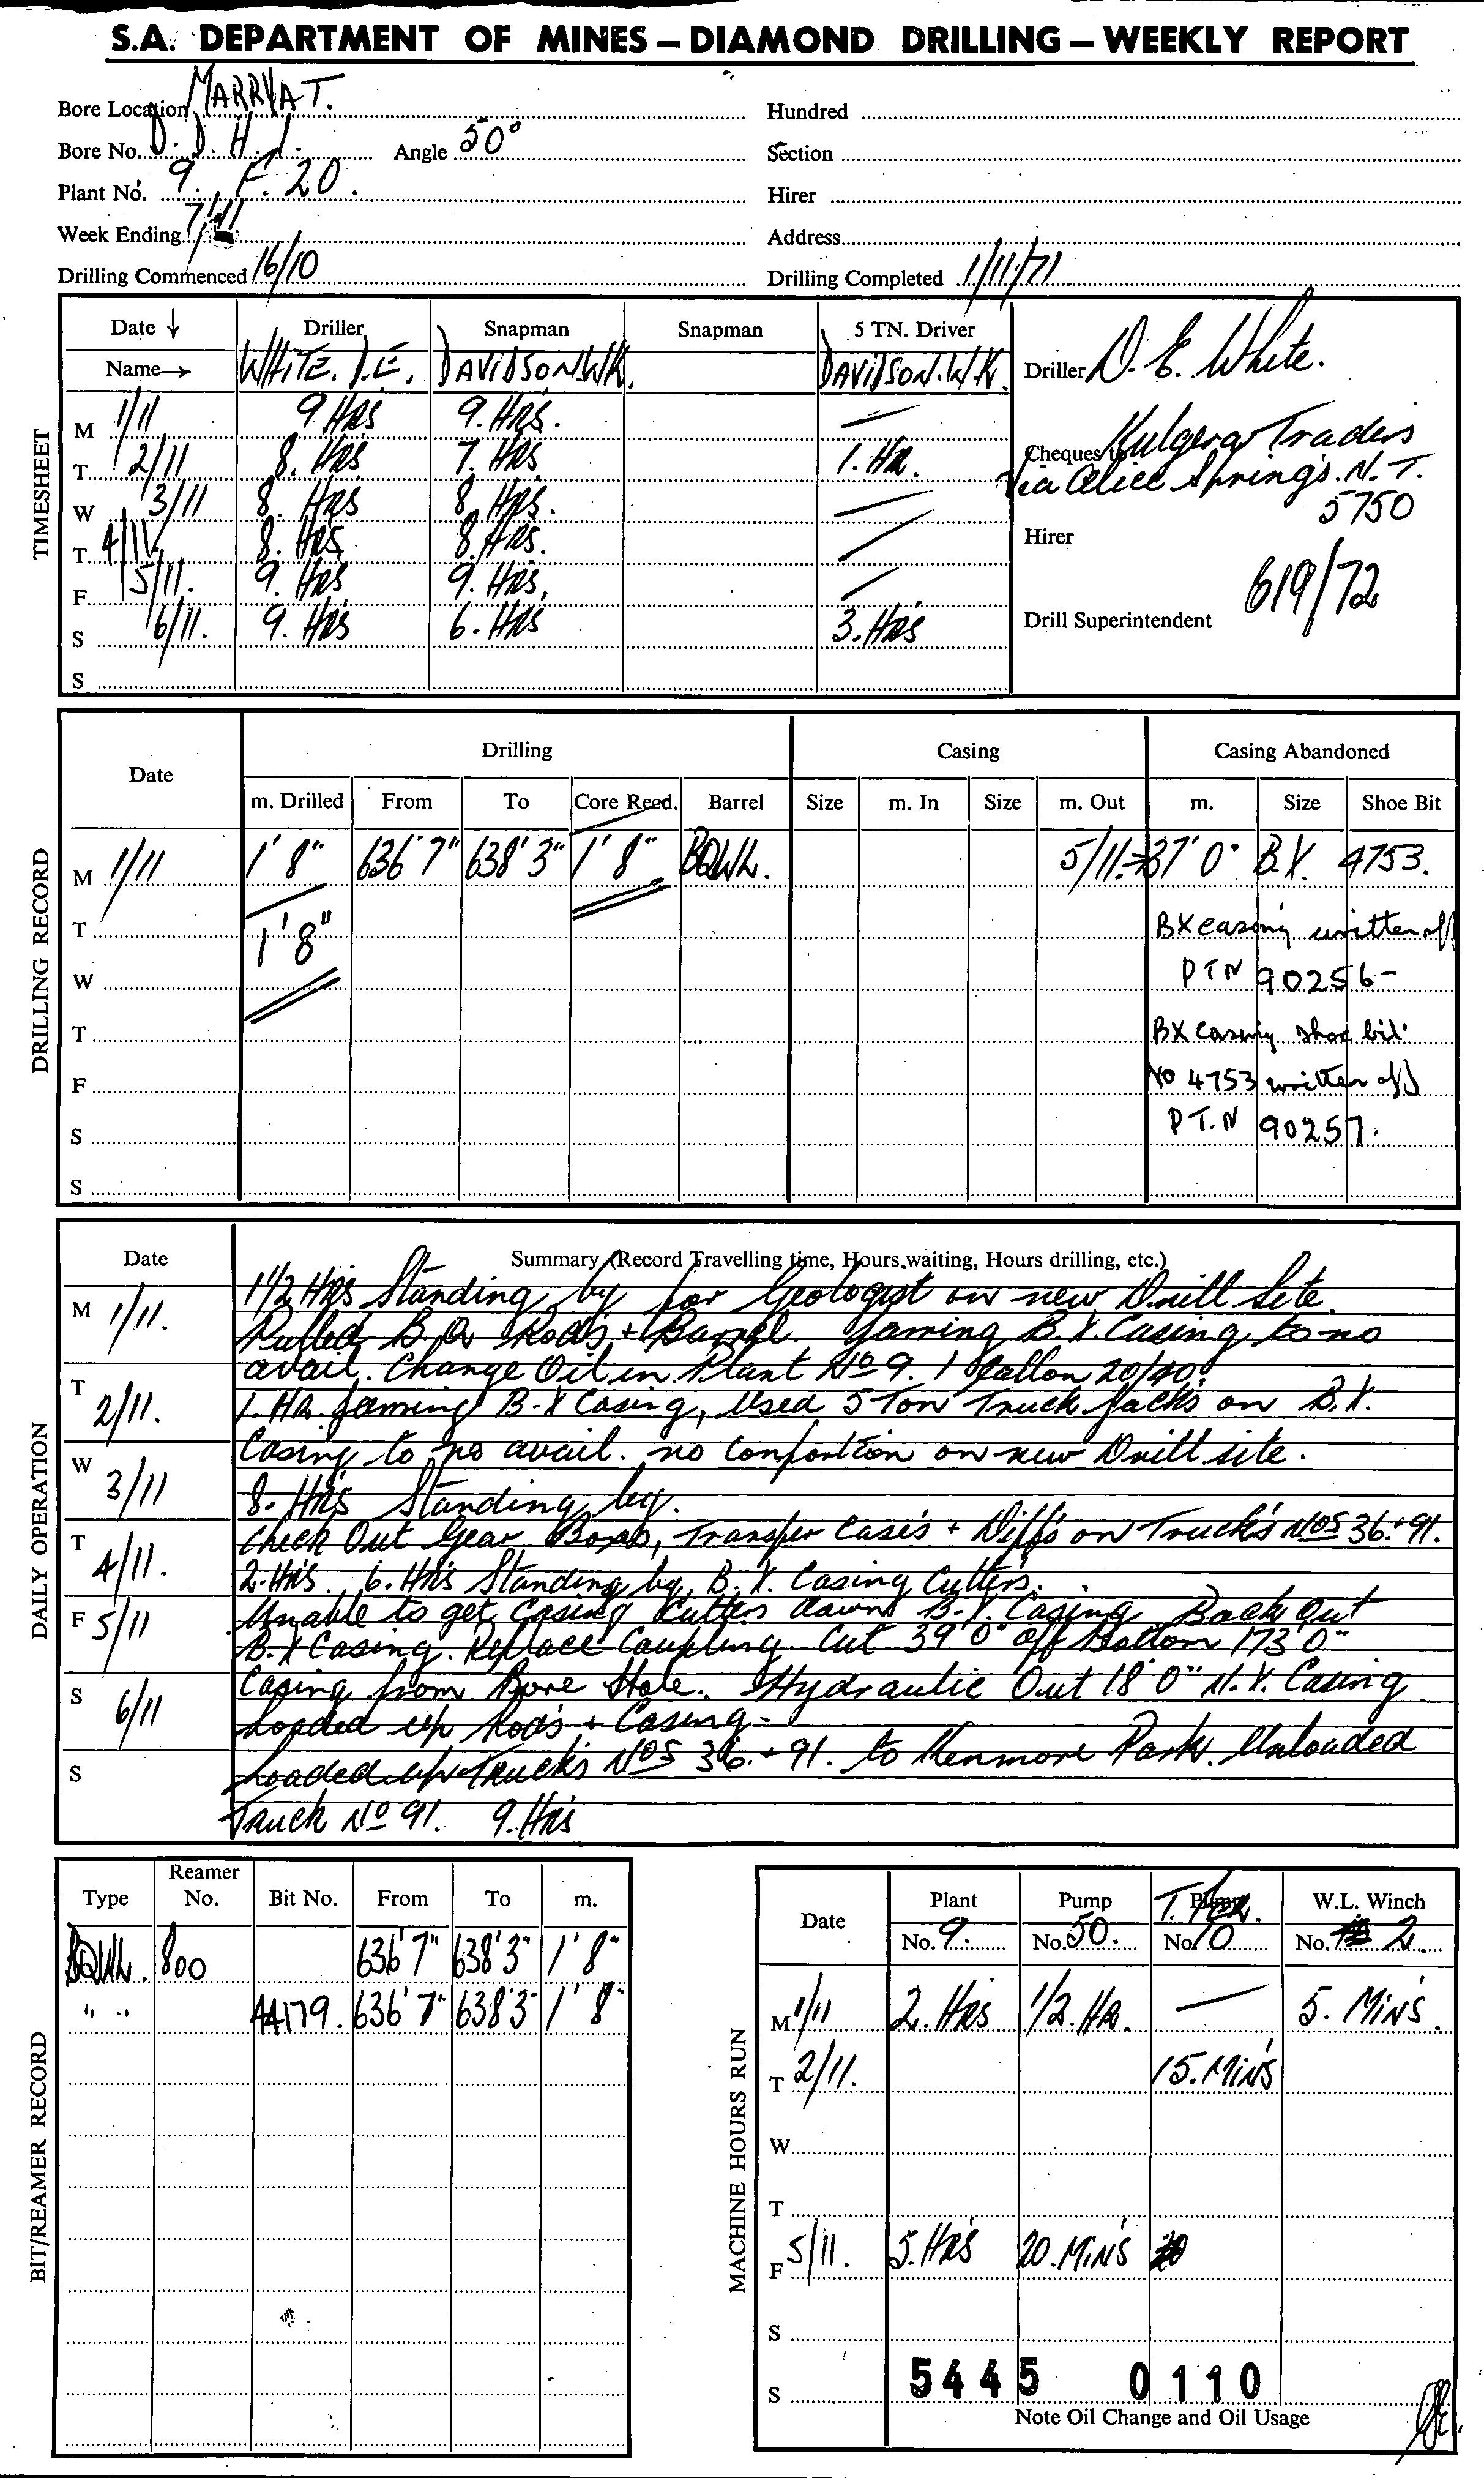 S.A. DEPARTMENT OF MINES – DIAMOND DRILLING – WEEKLY REPORT
Bore Location MARRYAT. Hundred
Bore No. D. D. H. 1. Angle 50° Section
Plant No. 9. F. 20. Hirer
Week Ending 7/11 Address
Drilling Commenced 16/10 Drilling Completed 1/11/71
TIMESHEET
Date ↓ Driller Snapman Snapman 5 TN. Driver
Name→ WHITE. D.E. DAVIDSON.W.K. DAVIDSON.W.K. Driller D. E. White.
M 1/11 9 HRS 9. HRS. —
T 2/11 8. HRS 7. HRS 1. HR. Cheques to Kulgera Traders
W 3/11 8. HRS 8. HRS. — Via Alice Springs. N.T.
5750
T 4/11 8. HRS 8. HRS. — Hirer
F 5/11. 9. HRS 9. HRS. — 619/72
S 6/11. 9. HRS 6. HRS 3. HRS Drill Superintendent
S
DRILLING RECORD
Date Drilling Casing Casing Abandoned
m. Drilled From To Core Recd. Barrel Size m. In Size m. Out m. Size Shoe Bit
M 1/11 1' 8" 636' 7" 638' 3" 1' 8" BQWL. 5/11 37' 0" B.X. 4753.
T 1' 8" BX casing written off
W PTN 90256-
T BX casing shoe bit
F No 4753 written off
S P T.N 90257.
S
DAILY OPERATION
Date Summary (Record Travelling time, Hours waiting, Hours drilling, etc.)
M 1/11. 1 1/2 Hrs Standing by for Geologist on new Drill Site.
Pulled B.Q Rods + Barrel. Jamming B.X. Casing to no
avail. Change Oil in Plant No 9. 1 Gallon 20/40.
T 2/11. 1. HR. jamming B-X Casing, Used 5 Ton Truck Jacks on B.X.
Casing to no avail. no on new Drill site.
W 3/11 8. HRS Standing by.
T 4/11. Check Out Gear Boxes, Transfer Cases + Diffs on Trucks Nos 36. + 91.
2. Hrs. 6. Hrs Standing by, B.X. Casing Cutters.
F 5/11 Unable to get Casing Cutters down B-X. Casing Back Out
B.X Casing. Replace Coupling. Cut 39' 0" off Bottom 173' 0"
S 6/11 Casing from Bore Hole. Hydraulic Out 18' 0" N.X. Casing
Loaded up Rods + Casing -
S Loaded up Trucks Nos 36. + 91. to Kenmore Park. Unloaded
Truck No 91. 9. Hrs
BIT/REAMER RECORD
Type Reamer No. Bit No. From To m.
BQWL. 800 636' 7" 638' 3" 1' 8"
" " AA179. 636' 7" 638' 3" 1' 8"
MACHINE HOURS RUN
Date Plant Pump T. Fer. W.L. Winch
No. 9. No. 50. No. 10 No. 2.
M 1/11 2. HRS 1/2. HR. — 5. MINS.
T 2/11. 15. MINS
W
T
F 5/11. 5. HRS 20. MINS
S
S 5445 0110
Note Oil Change and Oil Usage